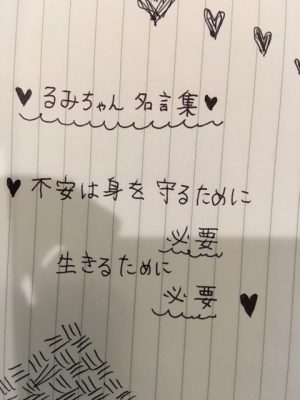 ♥るみちゃん 名言集♥
♥不安は身を守るために
必要
生きるために
必要 ♥